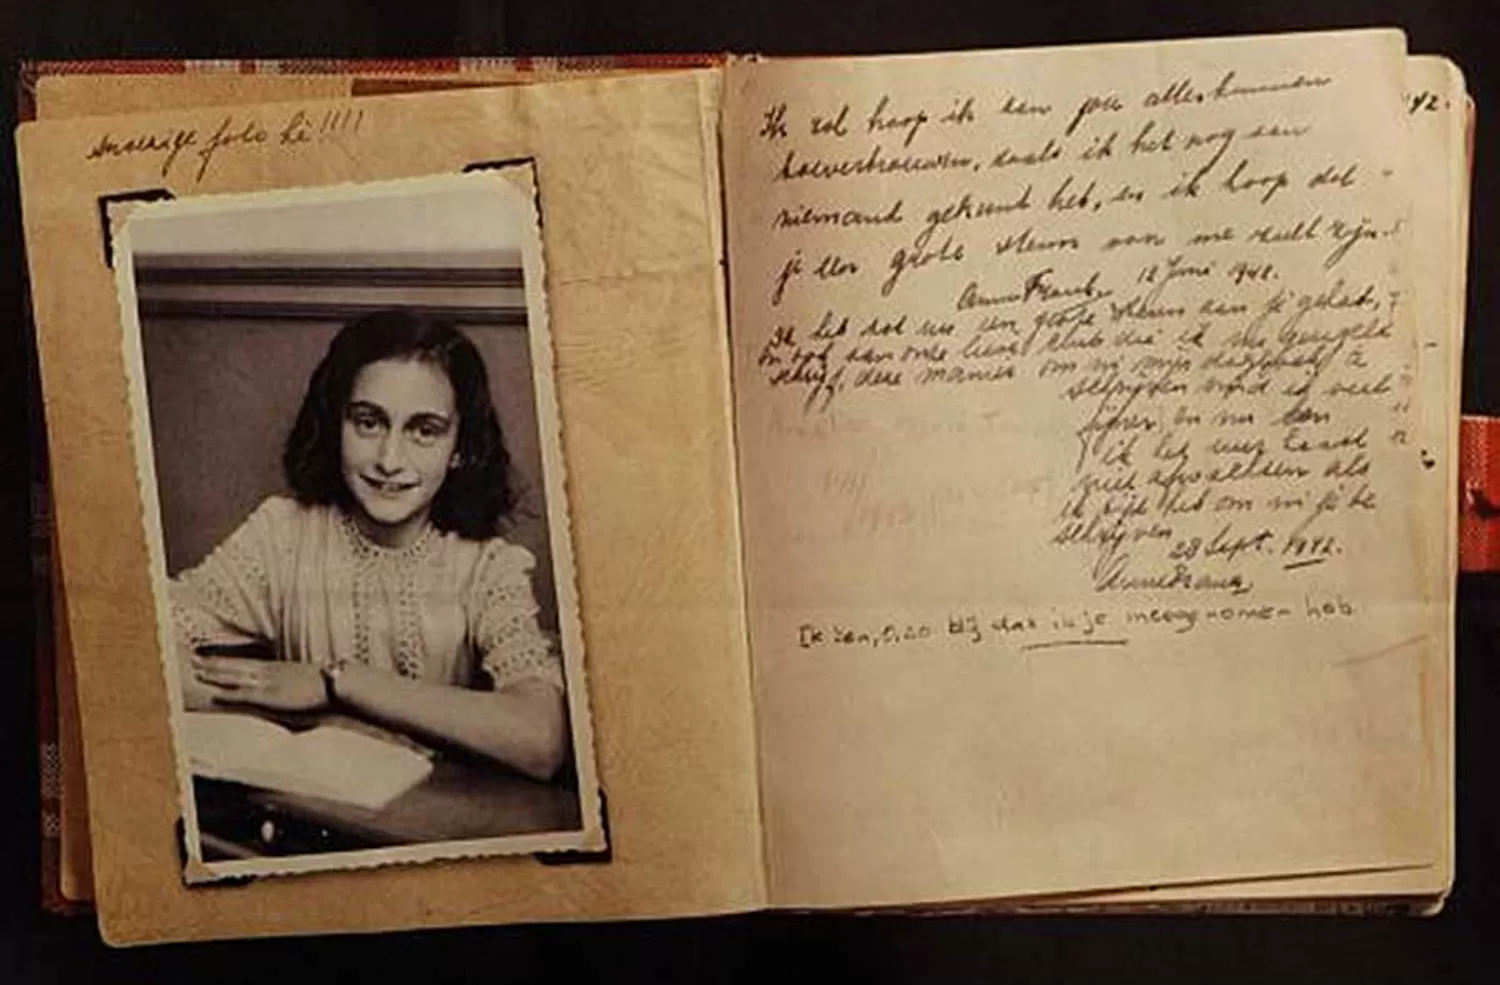 snoezige foto hè!!!!
42.
Ik zal hoop ik aan jou alles kunnen
toevertrouwen, zoals ik het nog aan
niemand gekund heb, en ik hoop dat
je een grote steun van me zult zijn.
Anne Frank. 12 Juni 1942.
Ik heb tot nu een grote steun aan je gehad,
en ook aan onze lieve club die ik nu geregeld
schrijf, deze manier om in mijn dagboek te
schrijven vind ik veel
fijner en nu kan
ik het uur haast
niet afwachten als
ik tijd heb om in je te
schrijven
28 Sept. 1942.
Anne Frank
Ik ben, o, zo blij dat ik je meegenomen heb